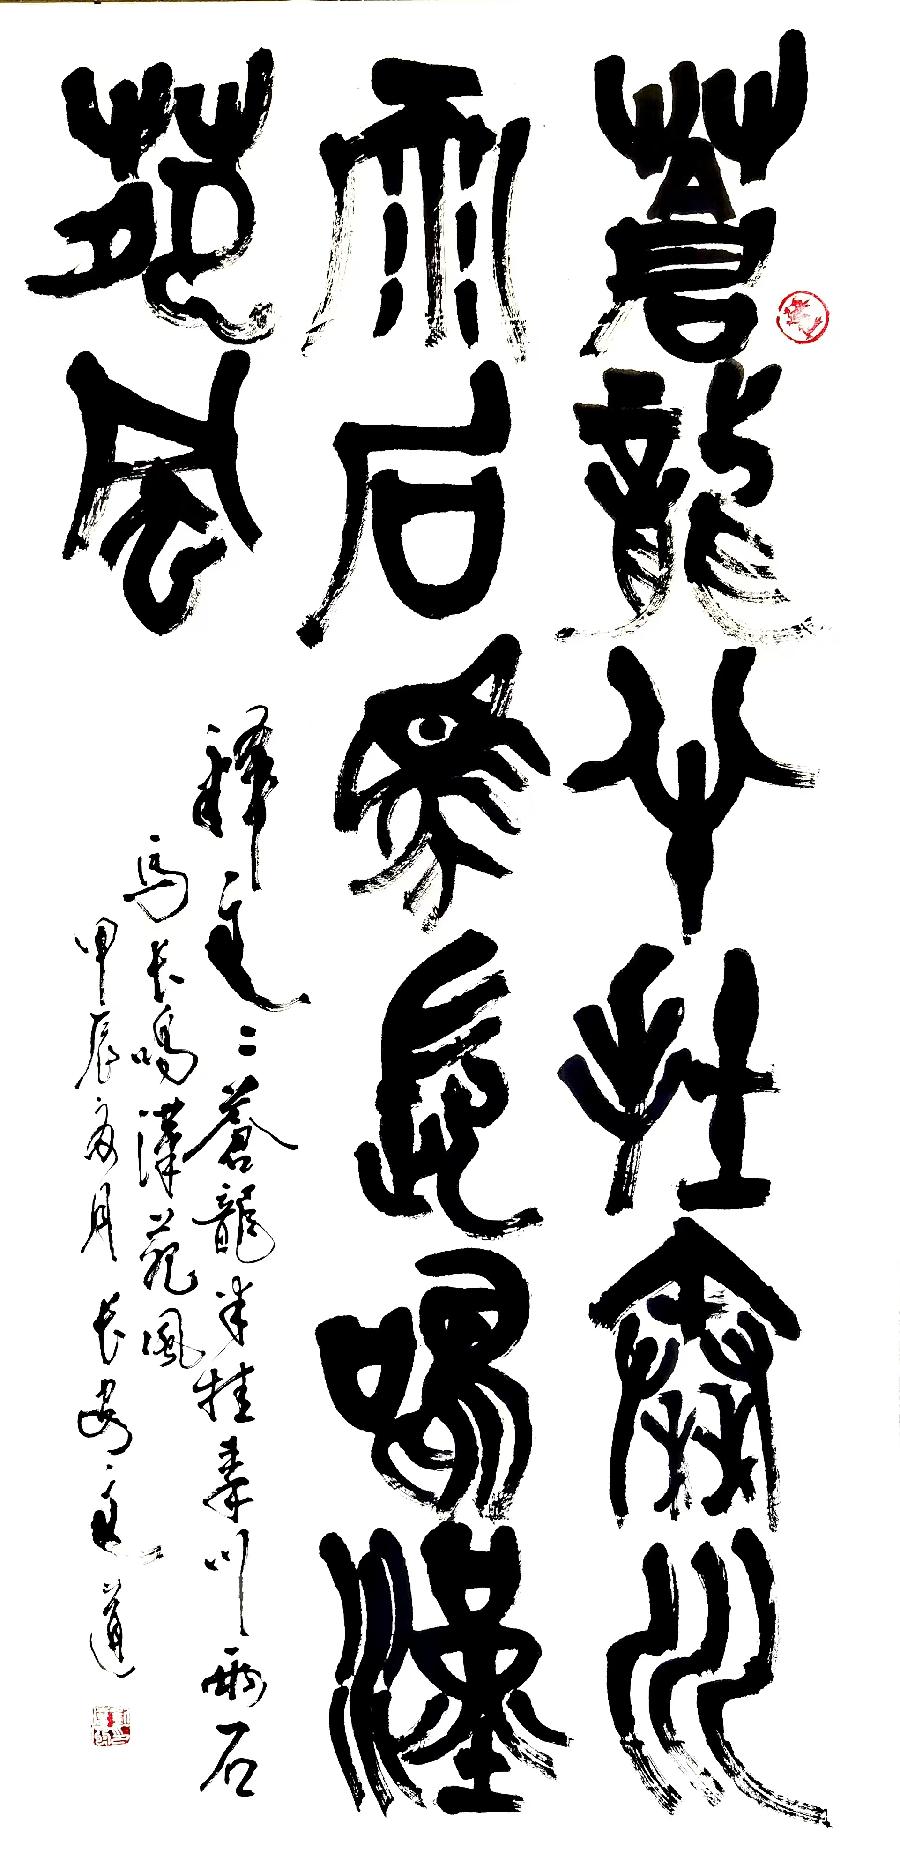 蒼龍半挂秦川
雨石馬長鳴漢
苑風
釋文：蒼龍半挂秦川雨石
馬长鳴漢苑風
甲辰夏月长安文道